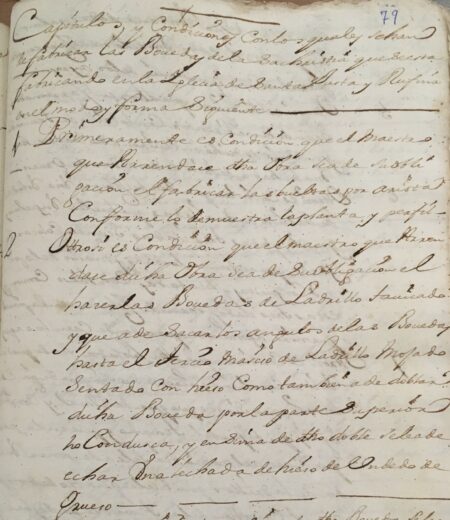 79
Capitulos y Condiciones Con los quales se han
de fabricar las Bovedas de la Sachristia que se esta
fabricando en la Iglecia de Santas Justa y Rufina
en el modo y forma Siguiente
1 Primeramente es Condicion que el Maestro
que Harrendace dha Obra sea de su obli
gacion el fabricar las bueltas por arista
Conforme lo demuestra la planta y perfil
2 Otrosi es Condicion que el maestro que Harren
dace dicha Obra sea de su obligacion el
hacer las Bovedas de Ladrillo
y que a de Sacar los angulos de las Bovedas
hasta el Tercio Masiso de Ladrillo Mojado
Sentado Con hieso Como tambien a de doblar
dicha Boveda por la parte Superior
y en Sima de dho doble se la de
echar Una de hieso de Un dedo de
Grueso